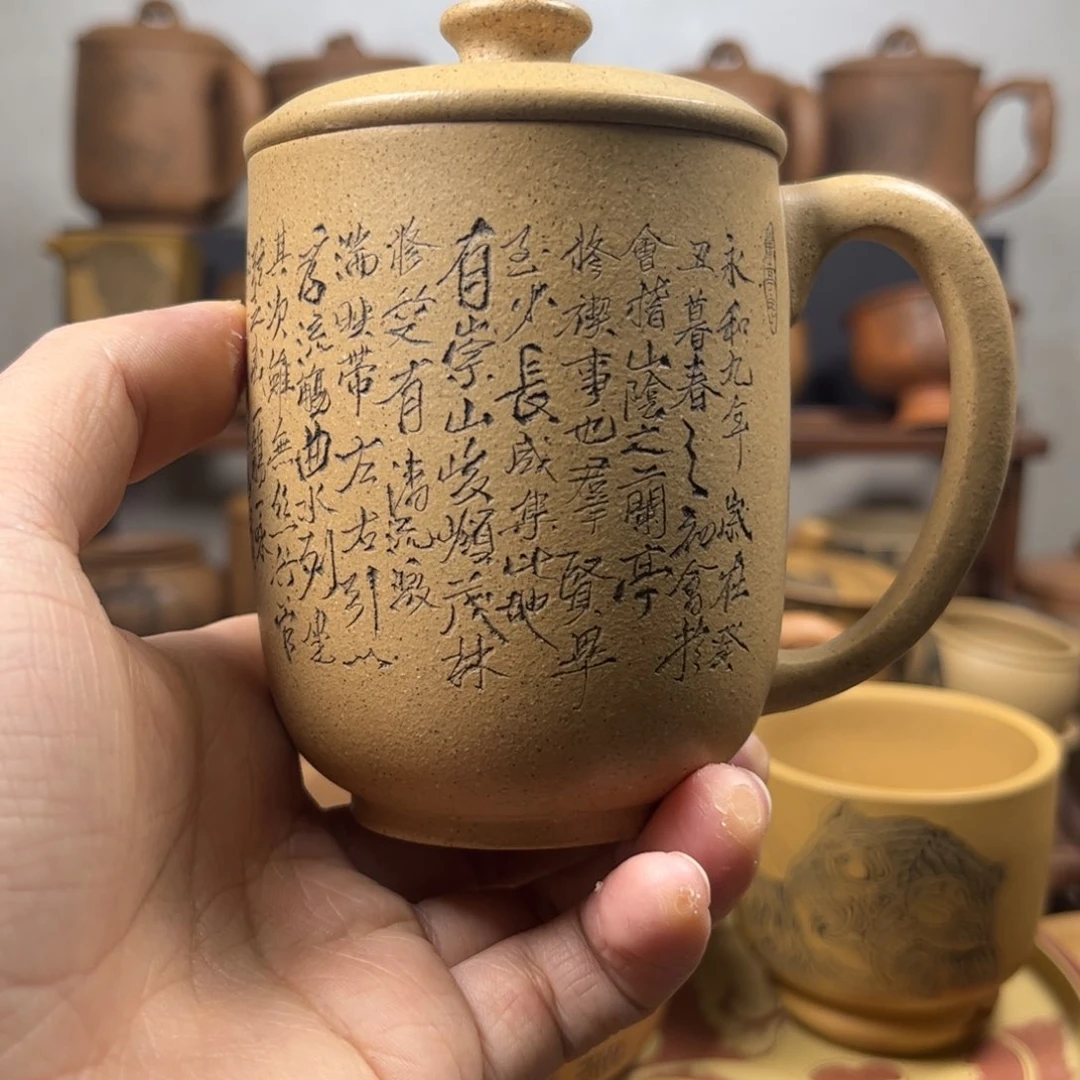 永和九年歲在癸
丑暮春之初會於
會稽山陰之蘭亭
脩禊事也羣賢畢
至少長咸集此地
有崇山峻嶺茂林
脩竹又有清流激
湍映帶左右引以
為流觴曲水列坐
其次雖無絲竹管
絃之盛一觴一詠